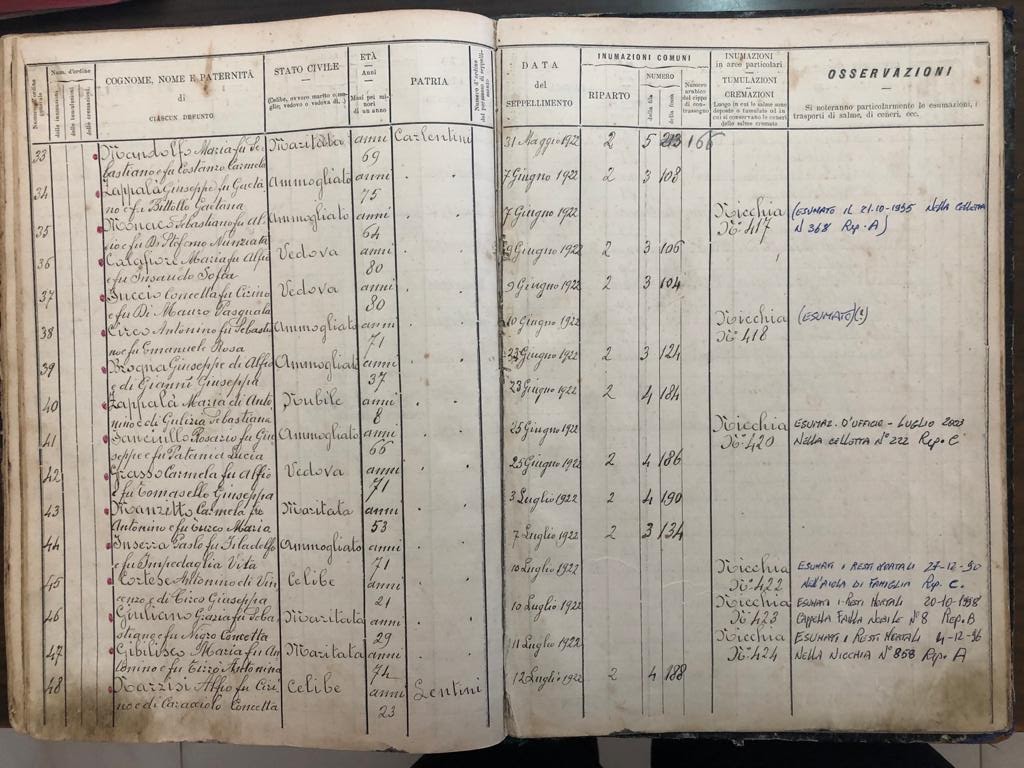 Num. d'ordine
COGNOME, NOME E PATERNITÀ
di
CIASCUN DEFUNTO
STATO CIVILE
(Celibe, ovvero marito o moglie; vedovo o vedova di.)
ETÀ
Anni
Mesi pei minori di un anno
PATRIA
DATA
del
SEPPELLIMENTO
INUMAZIONI COMUNI
RIPARTO
NUMERO
della fila
della fossa
Numero arabico del cippo di contrassegno
INUMAZIONI
in aree particolari
TUMULAZIONI
CREMAZIONI
Luogo in cui le salme sono deposte o tumulate od in cui si conservano le ceneri delle salme cremate
OSSERVAZIONI
Si noteranno particolarmente le esumazioni, i trasporti di salme, di ceneri, ecc.
33 Mandolfo Maria fu Sebastiano e fu Costanzo Carmela Maritata anni 69 Carlentini 31 Maggio 1922 2 5 213 166
34 Zappalà Giuseppe fu Gaetano e fu Bittello Gaetana Ammogliato anni 75 " " 7 Giugno 1922 2 3 108
35 Monaco Sebastiano fu Alfio e fu Di Stefano Nunziata Ammogliato anni 64 " " 7 Giugno 1922 Nicchia N° 417 (ESUMATO IL 21-10-1995 NELLA CELLETTA N 368 Rep. A)
36 Maria fu Alfio e fu Insaudo Sofia Vedova anni 80 " " 9 Giugno 1922 2 3 106
37 Concetta fu Cirino e fu Di Mauro Pasquala Vedova anni 80 " " 9 Giugno 1922 2 3 104
38 Circo Antonino fu Sebastiano e fu Emanuele Rosa Ammogliato anni 71 " " 10 Giugno 1922 Nicchia N° 418 (ESUMATO)(?)
39 Brogna Giuseppe di Alfio e di Gianni Giuseppa Ammogliato anni 37 " " 23 Giugno 1922 2 3 124
40 Zappalà Maria di Antonino e di Gulizia Sebastiana Nubile anni 8 " " 23 Giugno 1922 2 4 184
41 Sancillo Rosario fu Giuseppe e fu Patania Lucia Ammogliato anni 66 " " 25 Giugno 1922 Nicchia N° 420 ESUMAZ. D'UFFICIO - LUGLIO 2003 NELLA CELLETTA N° 222 Rep. C
42 Grasso Carmela fu Alfio e fu Tomasello Giuseppa Vedova anni 71 " " 25 Giugno 1922 2 4 186
43 Manzitto Carmela fu Antonino e fu Turco Maria Maritata anni 53 " " 3 Luglio 1922 2 4 190
44 Inserra Paolo fu Filadelfo e fu Impedaglia Vita Ammogliato anni 71 " " 7 Luglio 1922 2 3 134
45 Cortese Antonino di Vincenzo e di Circo Giuseppa Celibe anni 21 " " 10 Luglio 1922 Nicchia N° 422 ESUMATI I RESTI MORTALI 27-12-90 NELL'AIOLA DI FAMIGLIA Rep. C.
46 Giuliano Grazia fu Sebastiano e fu Nigro Concetta Maritata anni 29 " " 10 Luglio 1922 Nicchia N° 423 ESUMATI I RESTI MORTALI 20-10-1998 CAPPELLA NOBILE N° 8 Rep. B
47 Gibilisco Maria fu Antonino e fu Tirrò Antonina Maritata anni 74 " " 11 Luglio 1922 Nicchia N° 424 ESUMATI I RESTI MORTALI 4-12-96 NELLA NICCHIA N° 858 Rep. A
48 Narzisi Alfio fu Cirino e di Caracciolo Concetta Celibe anni 23 Lentini 12 Luglio 1922 2 4 188